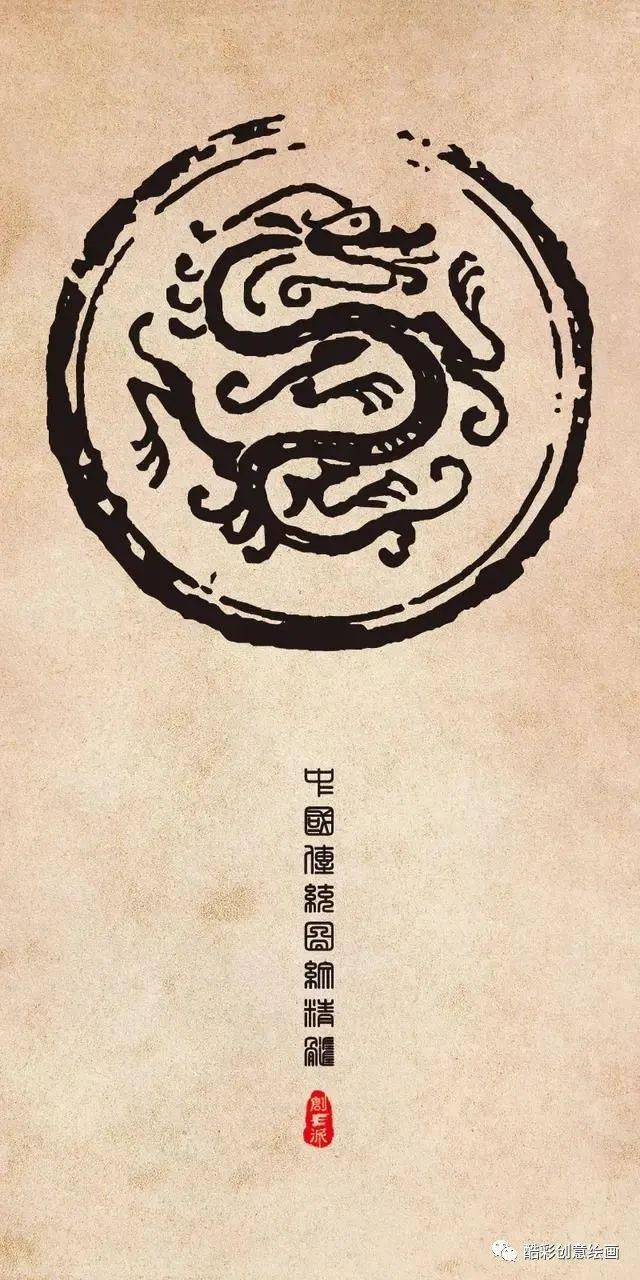 中國傳統圖紋精髓
創E派
酷彩创意绘画